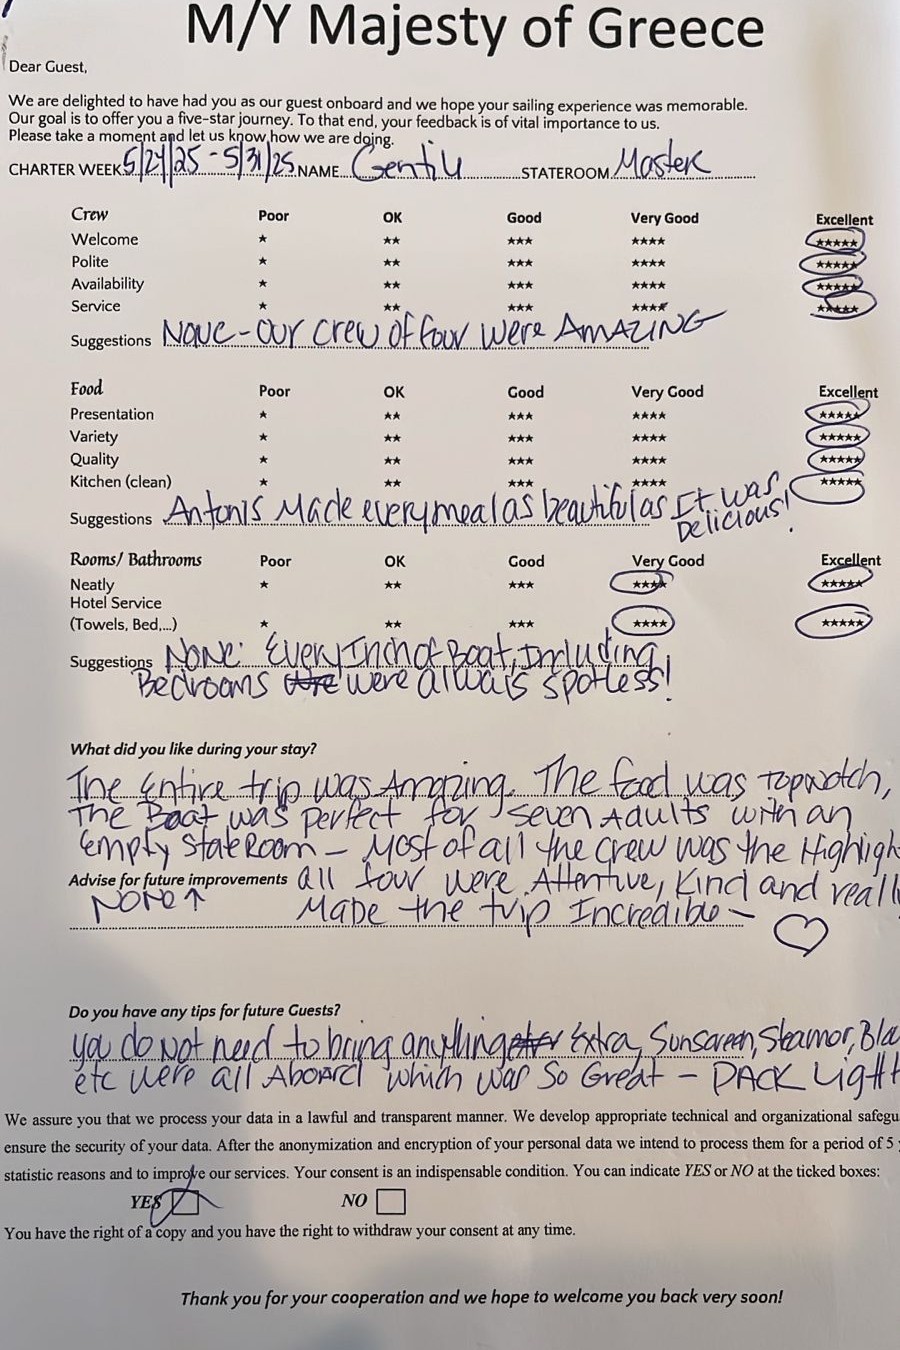 M/Y Majesty of Greece
Dear Guest,
We are delighted to have had you as our guest onboard and we hope your sailing experience was memorable.
Our goal is to offer you a five-star journey. To that end, your feedback is of vital importance to us.
Please take a moment and let us know how we are doing.
CHARTER WEEK 5/24/25 - 5/31/25 NAME Gentile STATEROOM Master
Crew Poor OK Good Very Good Excellent
Welcome ★ ★★ ★★★ ★★★★ ★★★★★
Polite ★ ★★ ★★★ ★★★★ ★★★★★
Availability ★ ★★ ★★★ ★★★★ ★★★★★
Service ★ ★★ ★★★ ★★★★ ★★★★★
Suggestions None - Our crew of four were AMAZING
Food Poor OK Good Very Good Excellent
Presentation ★ ★★ ★★★ ★★★★ ★★★★★
Variety ★ ★★ ★★★ ★★★★ ★★★★★
Quality ★ ★★ ★★★ ★★★★ ★★★★★
Kitchen (clean) ★ ★★ ★★★ ★★★★ ★★★★★
Suggestions Antonis Made every meal as beautiful as It was
Delicious!
Rooms/ Bathrooms Poor OK Good Very Good Excellent
Neatly ★ ★★ ★★★ ★★★★ ★★★★★
Hotel Service
(Towels, Bed,...) ★ ★★ ★★★ ★★★★ ★★★★★
Suggestions NONE: Every Inch of Boat, Including
Bedrooms were always spotless!
What did you like during your stay?
The Entire trip was Amazing. The food was topnotch,
The Boat was perfect for seven Adults with an
empty StateRoom - Most of all the crew was the Highligh
Advise for future improvements all four were Attentive, Kind and reall
NONE ↑ Made the trip Incredible ~
Do you have any tips for future Guests?
you do not need to bring anything Extra, Sunscreen, Steamor, Blo
etc were all Aboard which was So Great - PACK Light
We assure you that we process your data in a lawful and transparent manner. We develop appropriate technical and organizational safegu
ensure the security of your data. After the anonymization and encryption of your personal data we intend to process them for a period of 5
statistic reasons and to improve our services. Your consent is an indispensable condition. You can indicate YES or NO at the ticked boxes:
YES NO
You have the right of a copy and you have the right to withdraw your consent at any time.
Thank you for your cooperation and we hope to welcome you back very soon!